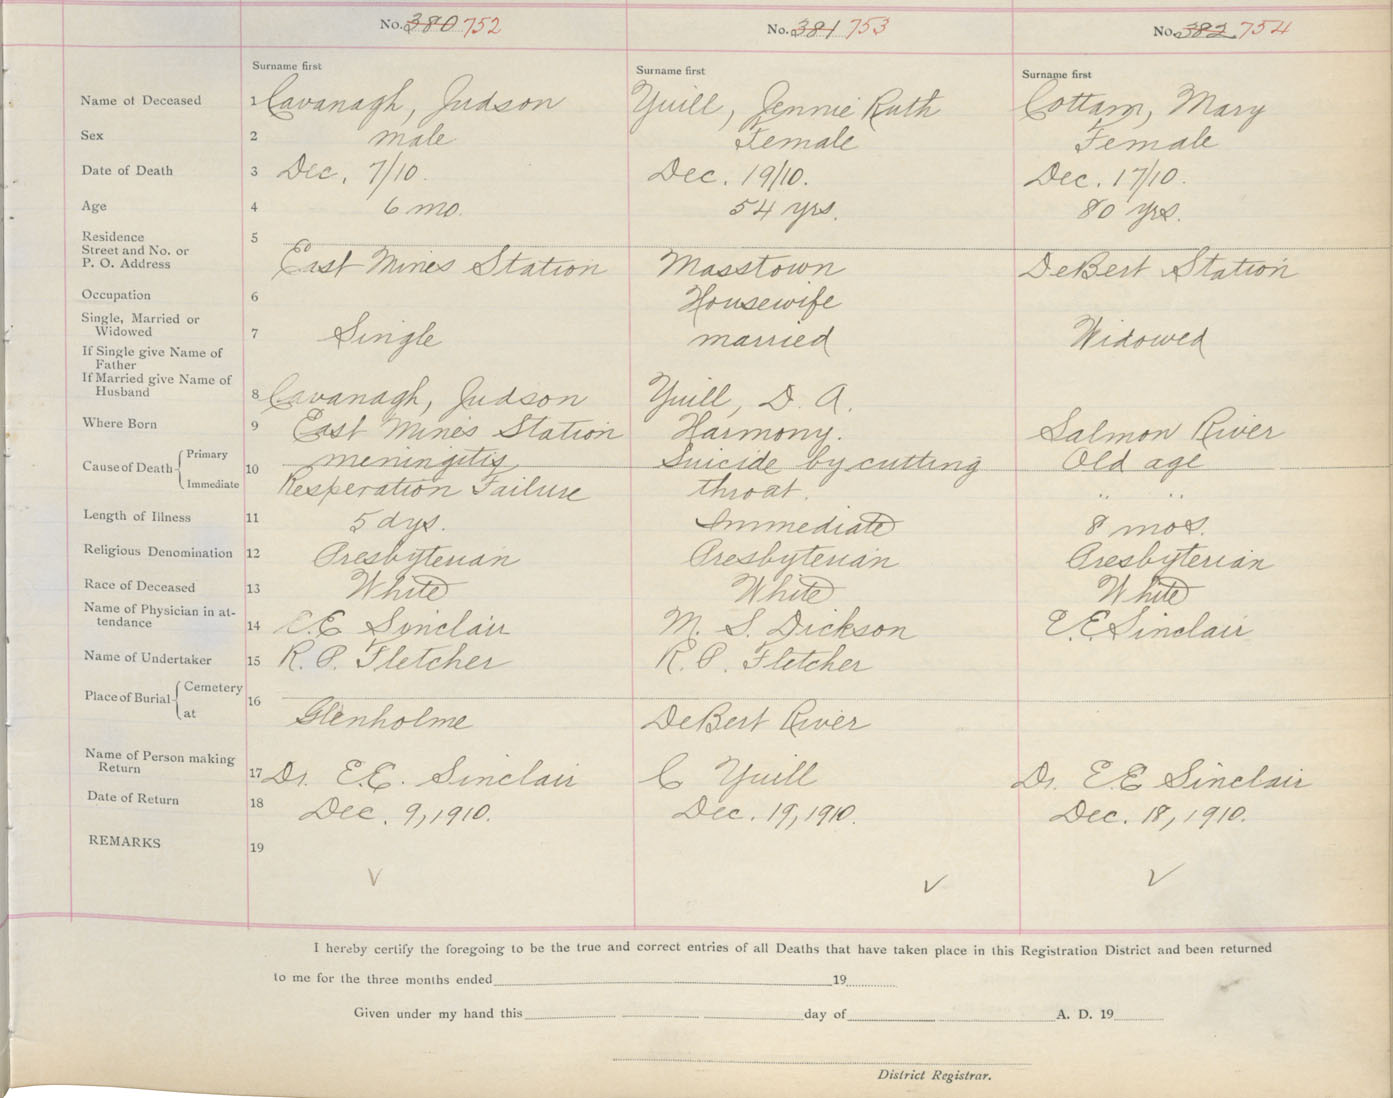 No. 380 752 No. 381 753 No. 382 754
Surname first Surname first Surname first
Name of Deceased 1 Cavanagh, Judson Yuill, Jennie Ruth Cottam, Mary
Sex 2 male Female Female
Date of Death 3 Dec. 7/10. Dec. 19/10. Dec. 17/10.
Age 4 6 mo. 54 yrs. 80 yrs.
Residence 5
Street and No. or
P. O. Address East Mines Station Masstown DeBert Station
Occupation 6 Housewife
Single, Married or
Widowed 7 Single married Widowed
If Single give Name of
Father
If Married give Name of
Husband 8 Cavanagh, Judson Yuill, D. A.
Where Born 9 East Mines Station Harmony. Salmon River
Cause of Death Primary 10 meningitis Suicide by cutting Old age
Immediate Resperation Failure throat. " "
Length of Illness 11 5 dys. Immediate 8 mos.
Religious Denomination 12 Presbyterian Presbyterian Presbyterian
Race of Deceased 13 White White White
Name of Physician in at-
tendance 14 E.E Sinclair M. S. Dickson E.E Sinclair
Name of Undertaker 15 R. P. Fletcher R. P. Fletcher
Place of Burial Cemetery 16
at Glenholme DeBert River
Name of Person making
Return 17 Dr. E.E. Sinclair C Yuill Dr. E.E Sinclair
Date of Return 18 Dec. 9, 1910. Dec. 19, 1910. Dec. 18, 1910.
REMARKS 19
I hereby certify the foregoing to be the true and correct entries of all Deaths that have taken place in this Registration District and been returned
to me for the three months ended 19
Given under my hand this day of A. D. 19
District Registrar.